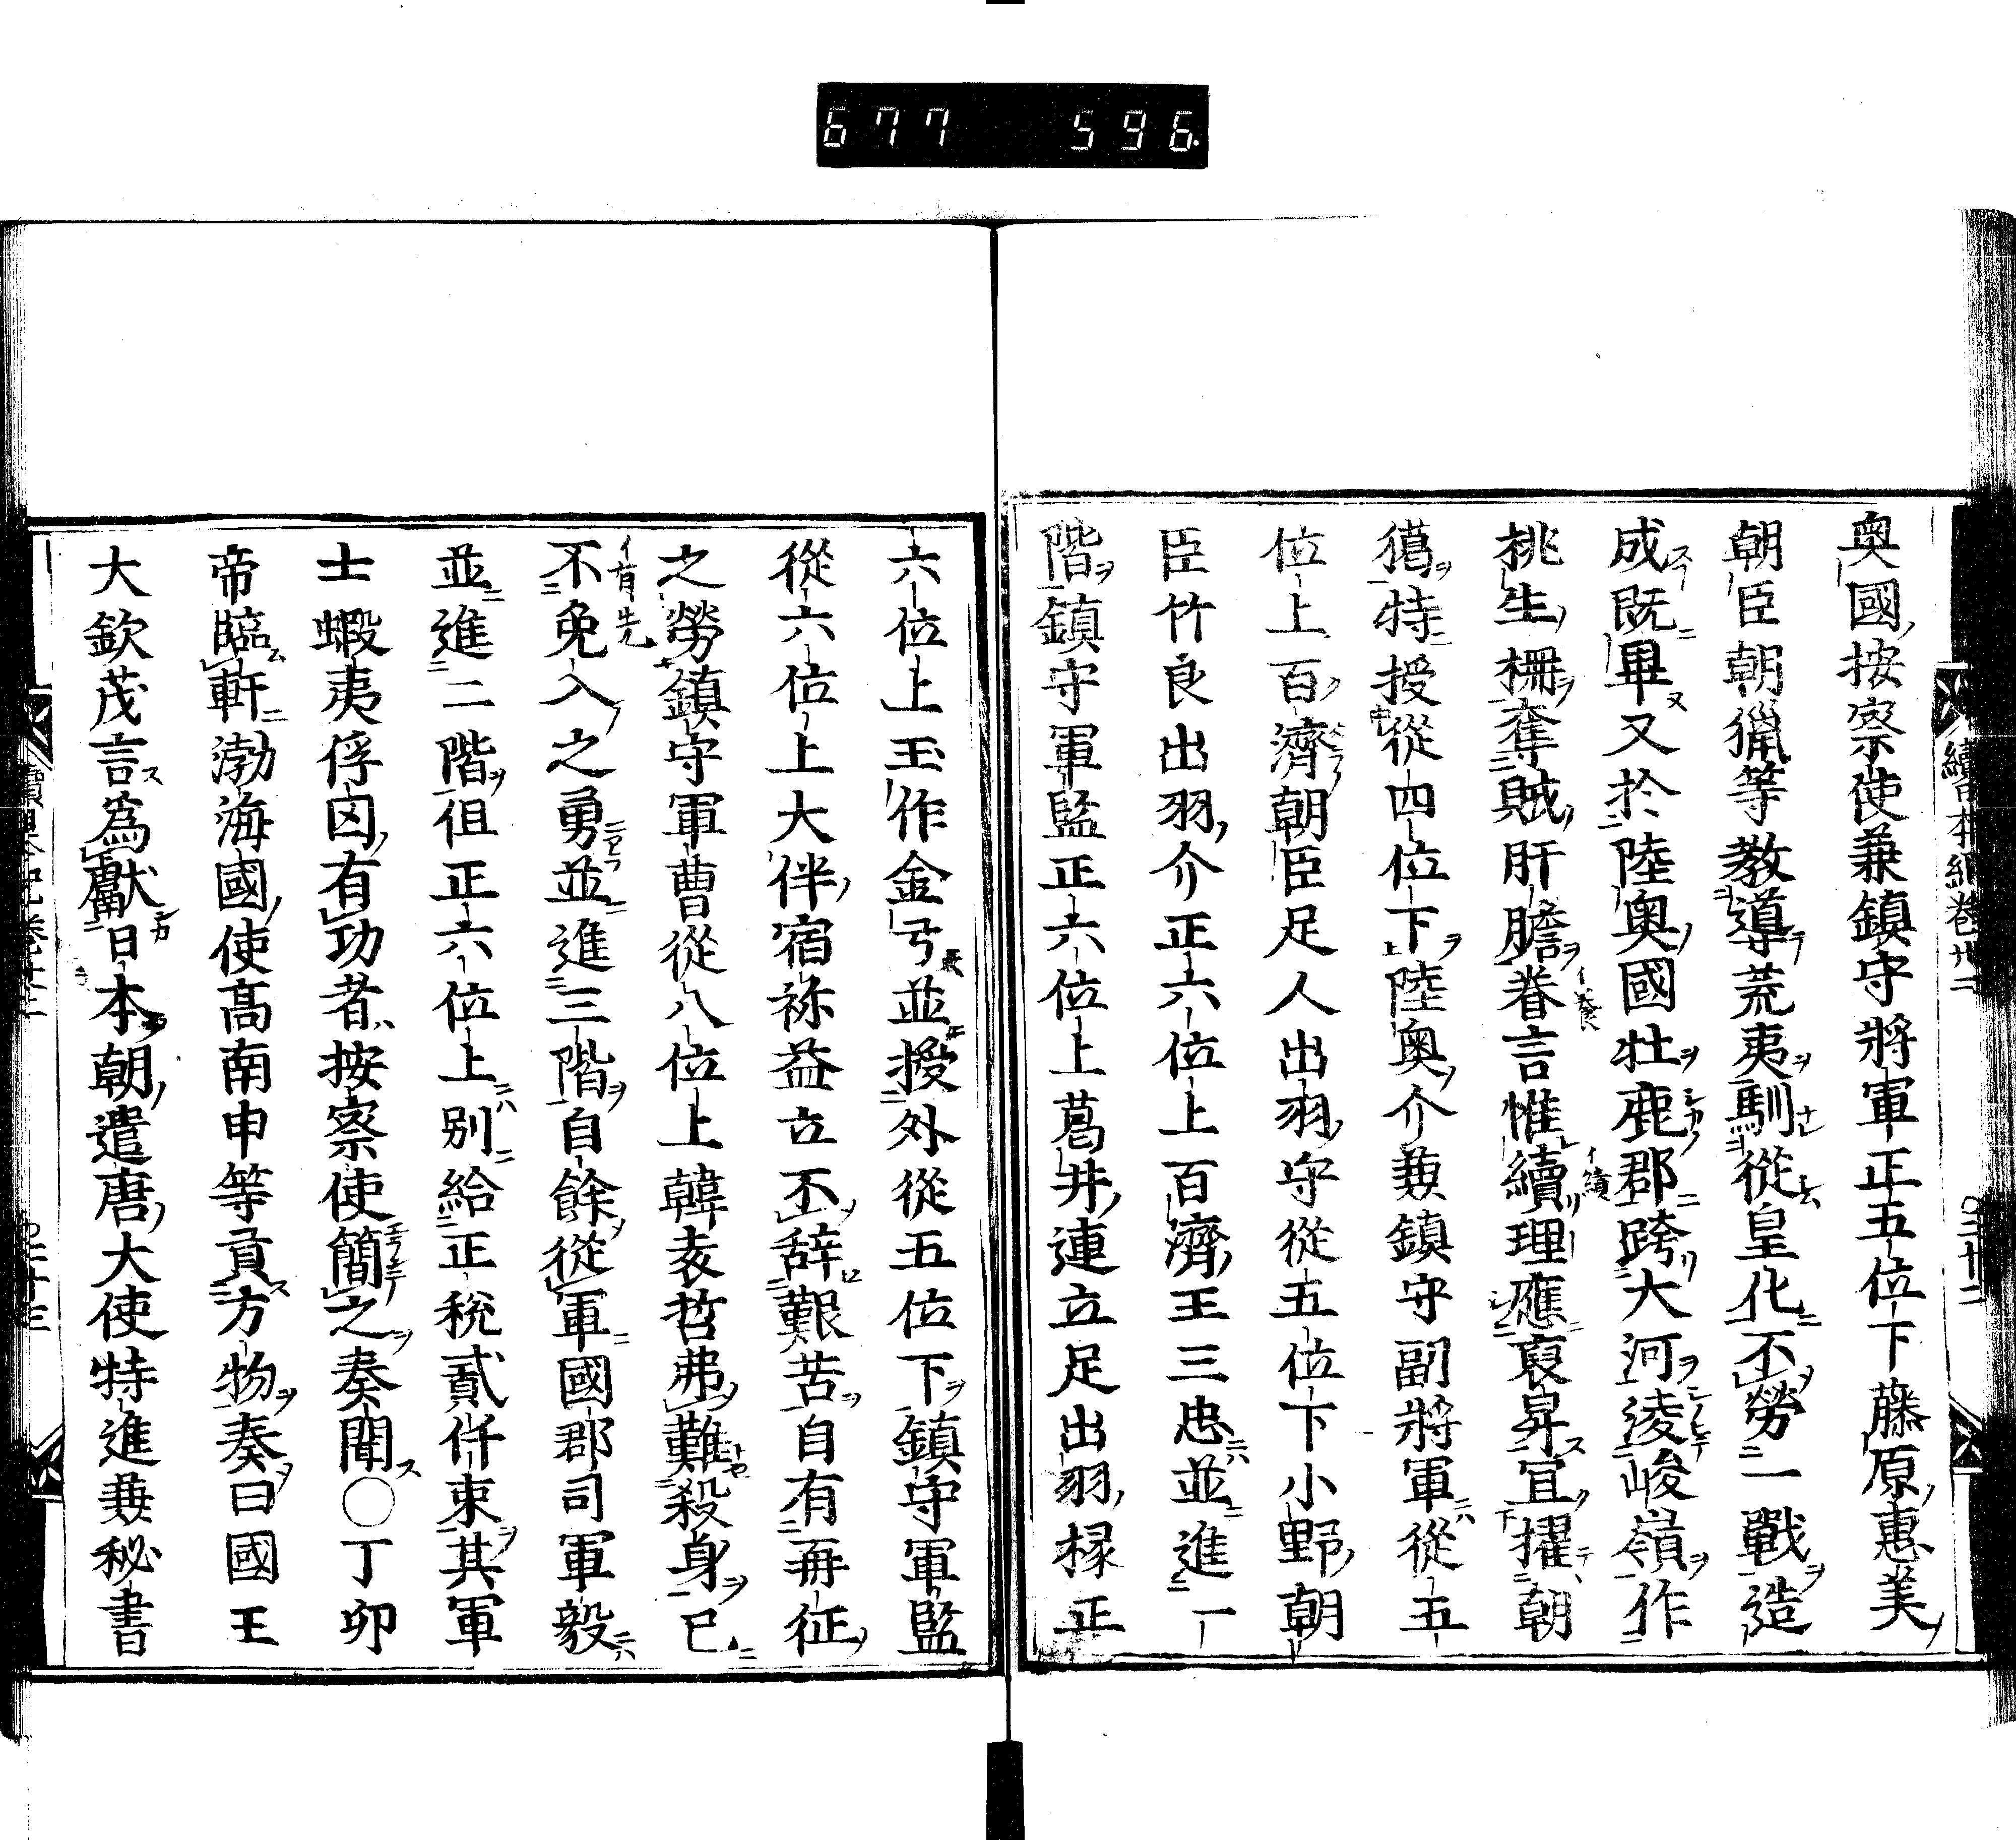 677 596.
奥國按察使兼鎮守將軍正五位下藤原惠美
朝臣朝獵等教導荒夷馴從皇化不勞一戰造
成既畢又於陸奥國牡鹿郡跨大河淩峻嶺作
桃生柵奪賊肝膽眷言惟續理應褒昇宜擢朝
獦特授從四位下陸奥介兼鎮守副將軍從五
位上百濟朝臣足人出羽守從五位下小野朝
臣竹良出羽介正六位上百濟王三忠並進一
階鎮守軍監正六位上葛井連立足出羽掾正
六位上玉作金弓並授外從五位下鎮守軍監
從六位上大伴宿祢益立不辞艱苦自有再征
之勞鎮守軍曹從八位上韓袁哲弗難殺身已
不免入之勇並進三階自餘從軍國郡司軍毅
並進二階但正六位上別給正稅貳仟束其軍
士蝦夷俘囚有功者按察使簡之奏聞○丁卯
帝臨軒渤海國使髙南申等貢方物奏曰國王
大欽茂言爲獻日本朝遣唐大使特進兼秘書